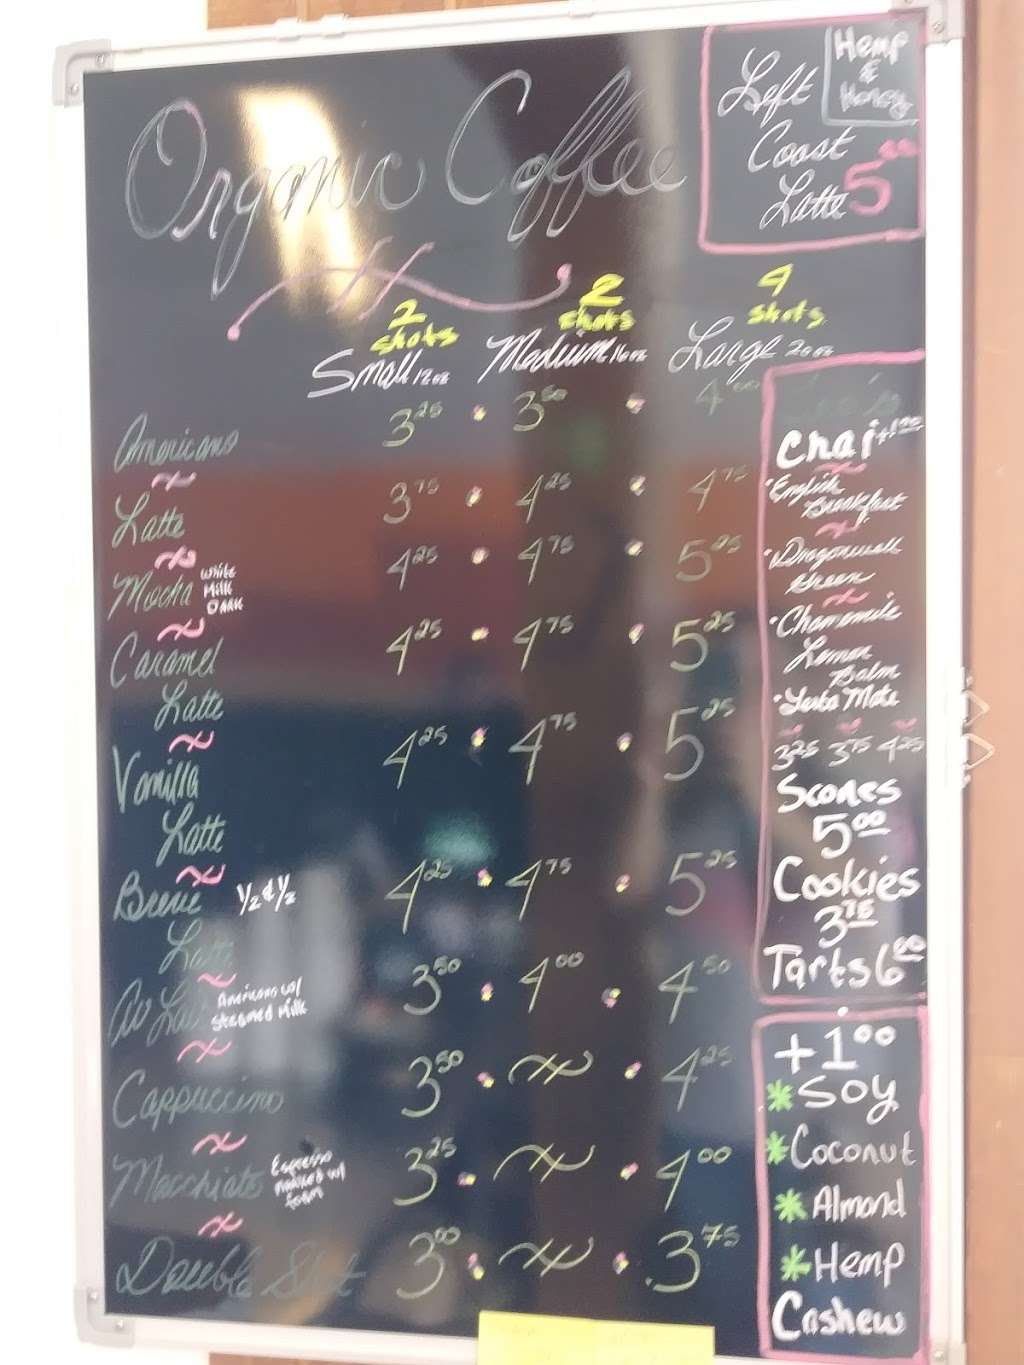 Organic Coffee
Left
Coast
Latte 5.00
Hemp
&
Honey
2 shots
2 shots
4 shots
Small 12oz Medium 16oz Large 20oz
Americano 3.25 • 3.50 • 4.00
Latte 3.75 • 4.25 • 4.75
Mocha White Milk Dark 4.25 • 4.75 • 5.25
Caramel 4.25 • 4.75 • 5.25
Latte
Vanilla 4.25 • 4.75 • 5.25
Latte
Breve ½ & ½ 4.25 • 4.75 • 5.25
Latte
Au Lait Americano w/ Steamed Milk 3.50 • 4.00 • 4.50
Cappuccino 3.50 • • 4.25
Macchiato Espresso w/ foam 3.25 • • 4.00
Double Shot 3.00 • • 3.75
Chai
• English
Breakfast
• Dragonwell
Green
• Chamomile
Lemon
Balm
• Yerba Mate
3.25 3.75 4.25
Scones
5.00
Cookies
3.75
Tarts 6.00
+1.00
* Soy
* Coconut
* Almond
* Hemp
Cashew